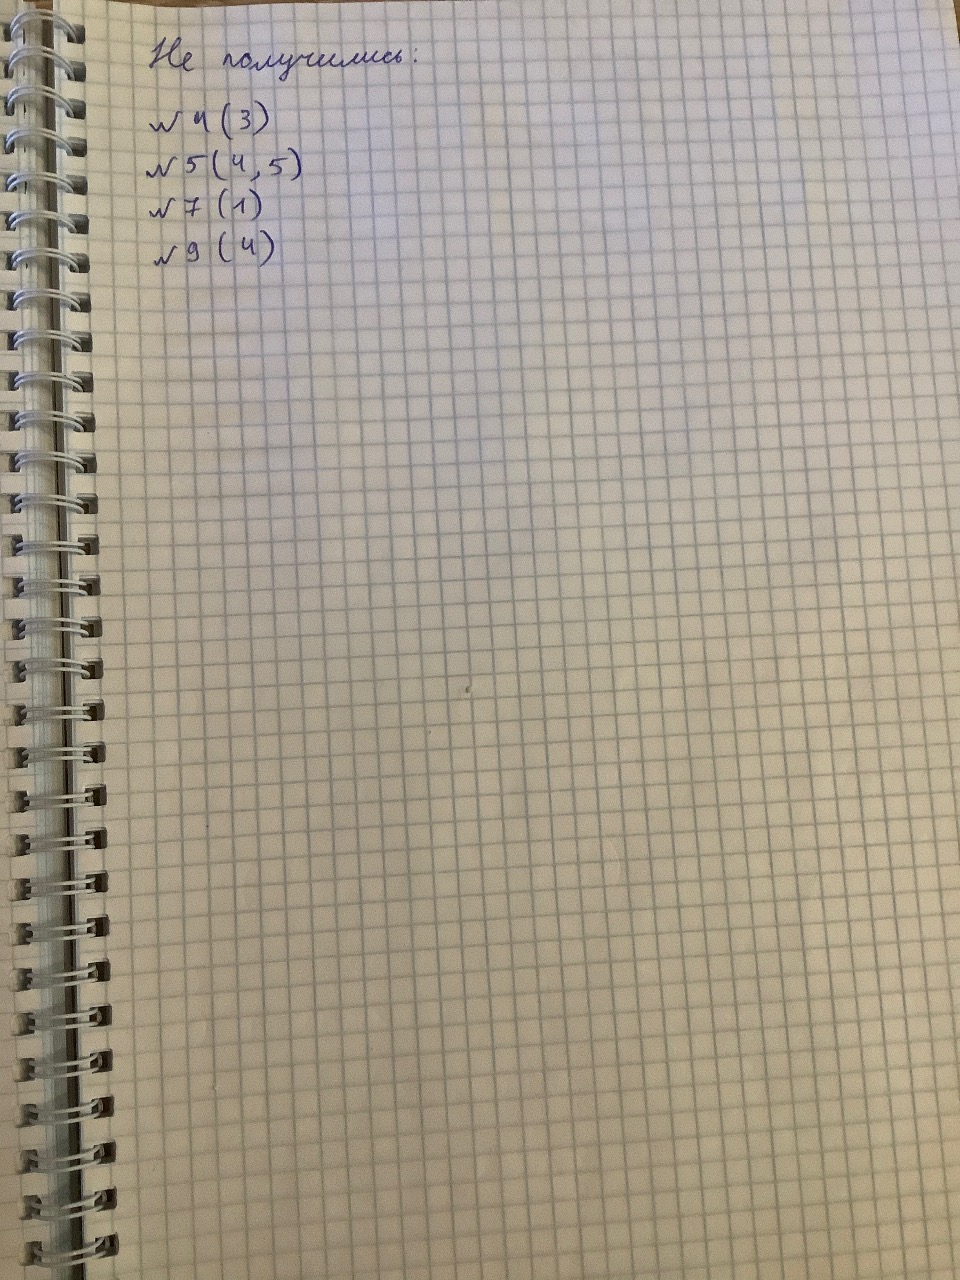 Не получились:
№ 4 (3)
№ 5 (4, 5)
№ 7 (1)
№ 9 (4)